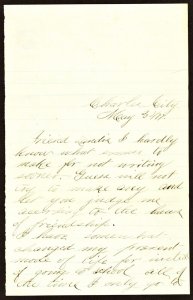 Charles City
May
Friend I hardly
know what excuse to
make for not writing
sooner. Guess will not
try to make any and
let you judge me
according to the laws
of friendship.
I have somewhat
changed my present
mode of life for instead
of going to school all of
the time I only go